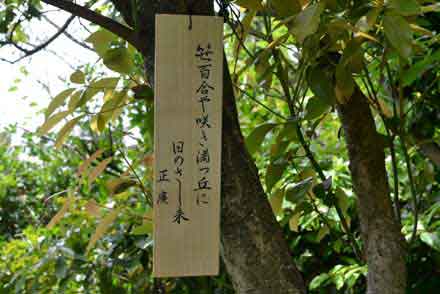 笹百合や咲き満つ丘に
日のさし来
正廣